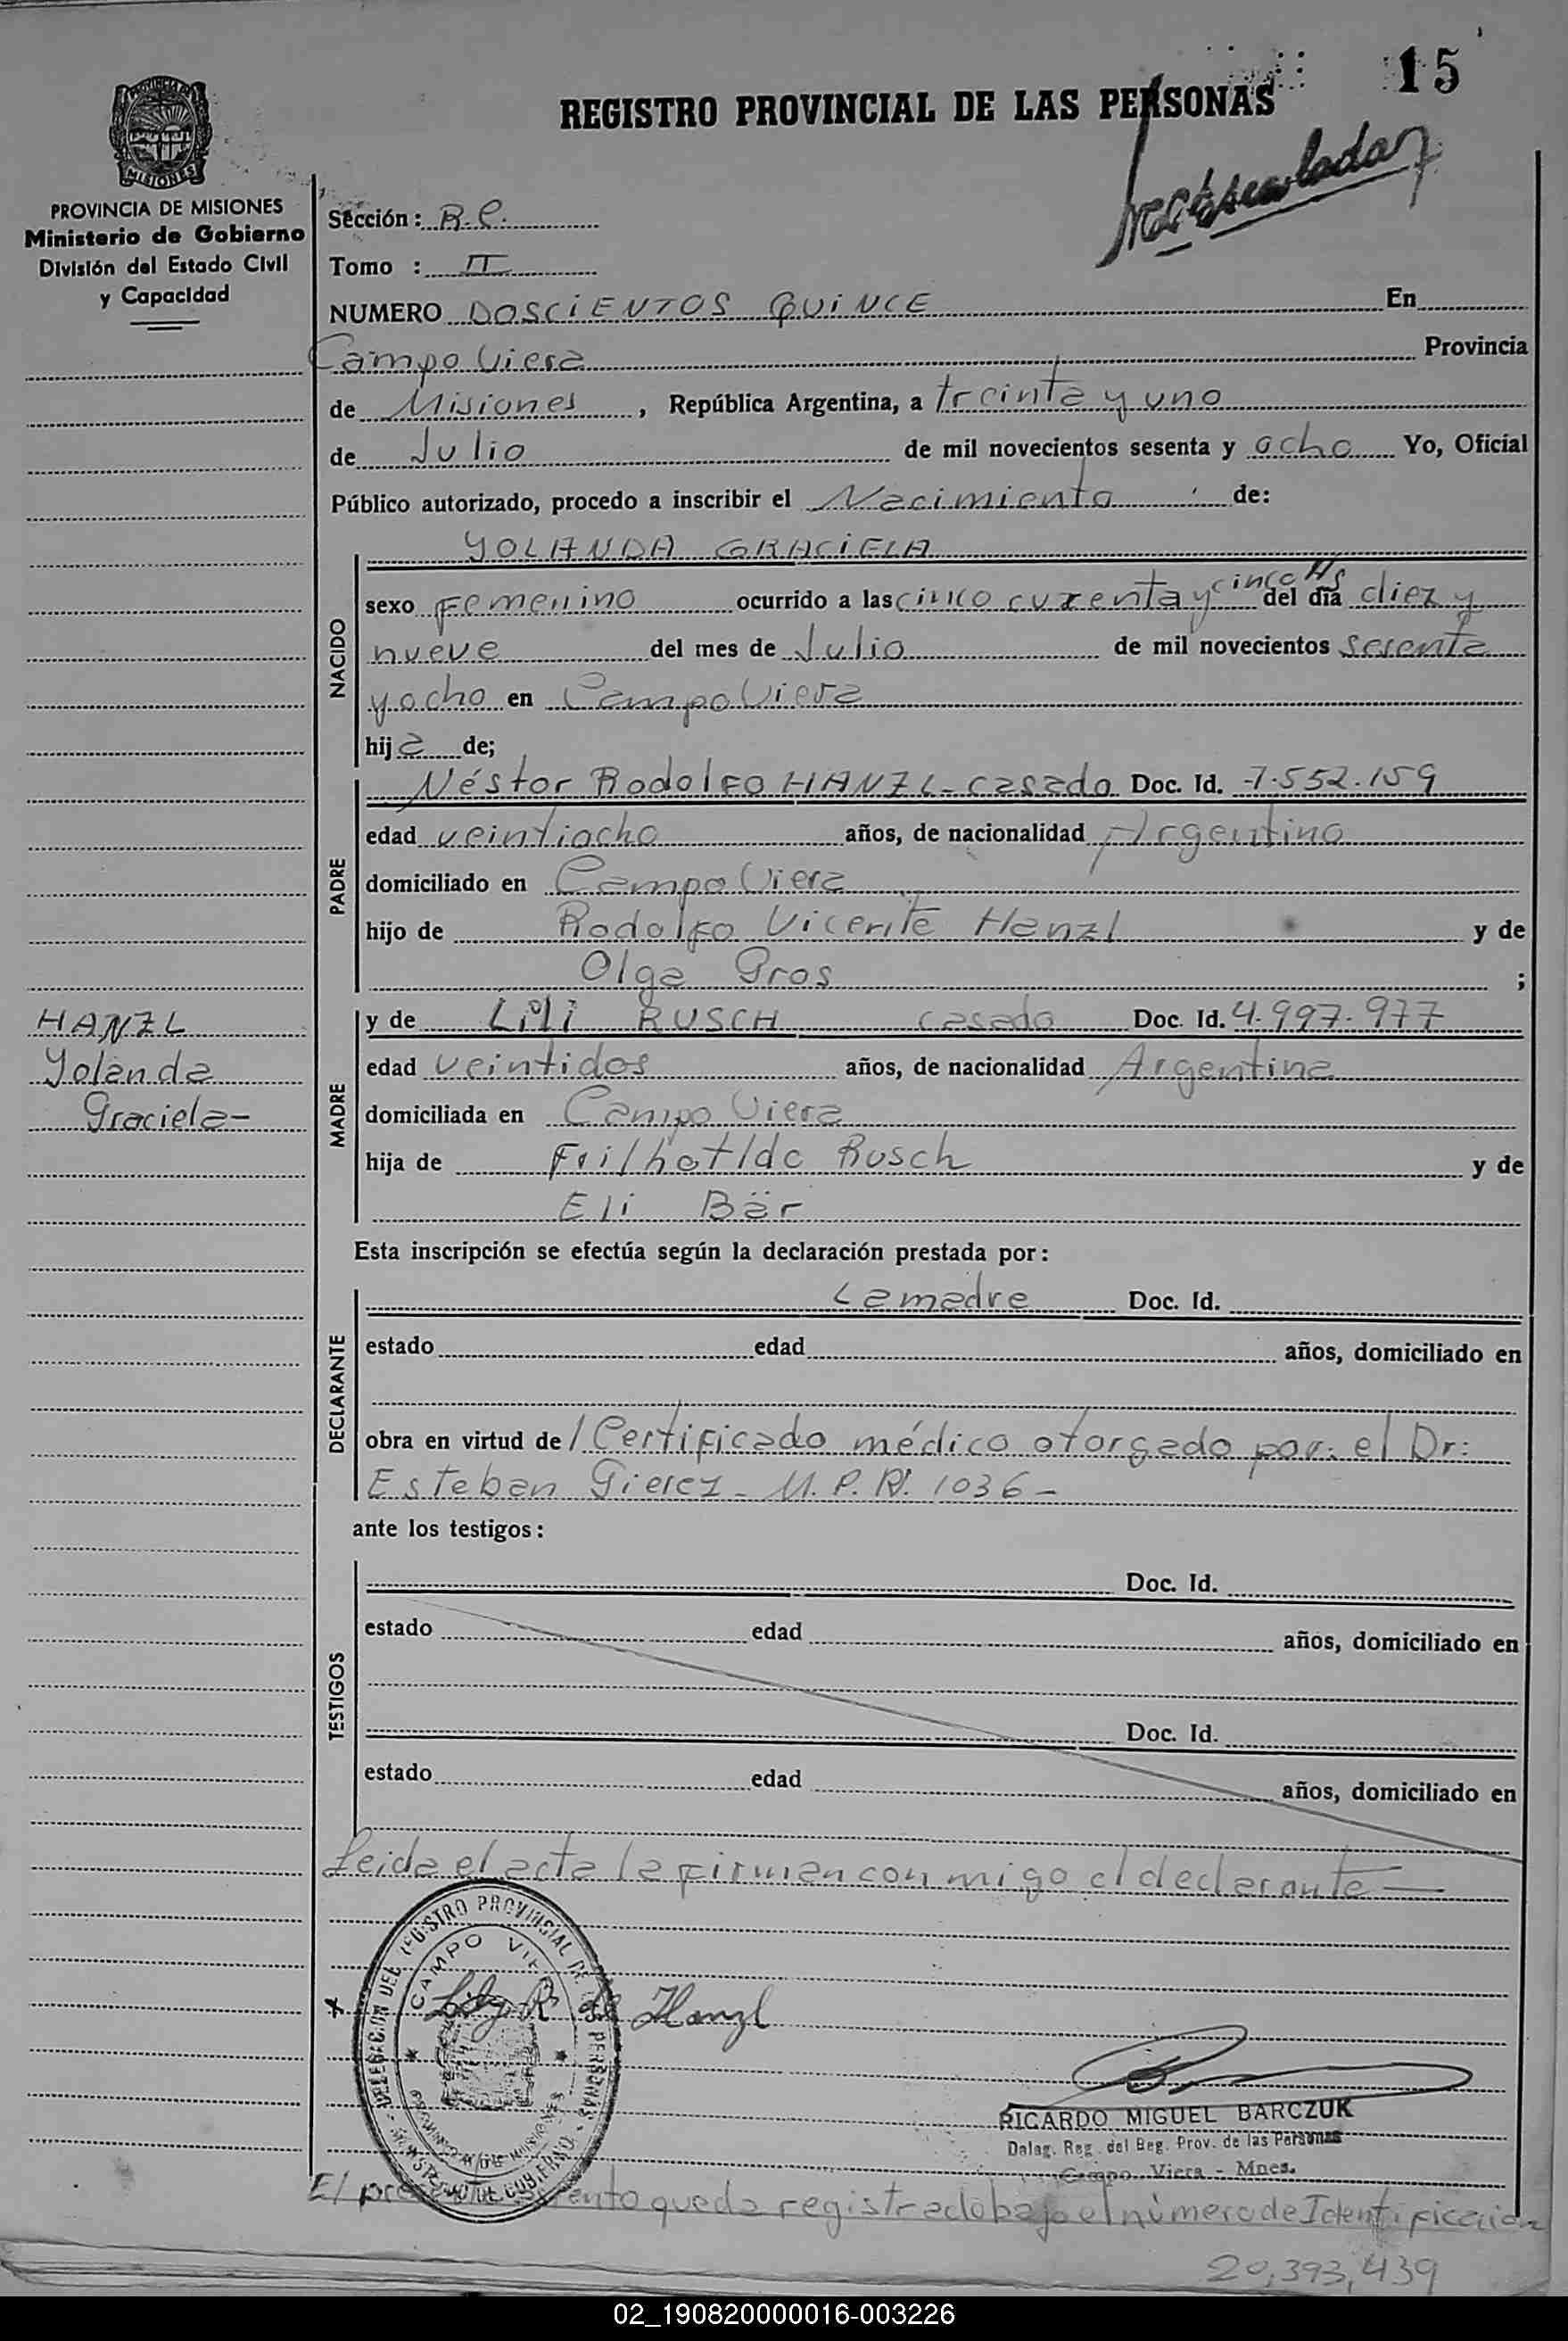 15
REGISTRO PROVINCIAL DE LAS PERSONAS
PROVINCIA DE MISIONES
Ministerio de Gobierno
División del Estado Civil
y Capacidad
MISIONES
Sección: R.C.
Tomo : II
NUMERO DOSCIENTOS QUINCE En
Campo Viera Provincia
de Misiones, República Argentina, a treinta y uno
de Julio de mil novecientos sesenta y ocho Yo, Oficial
Público autorizado, procedo a inscribir el Nacimiento de:
NACIDO
YOLANDA GRACIELA
sexo Femenino ocurrido a las cinco curenta y cinco Hs del día diez y
nueve del mes de Julio de mil novecientos sesenta
y ocho en Campo Viera
hija de;
PADRE
Néstor Rodolfo HANZL - casado Doc. Id. 7.552.159
edad veintiocho años, de nacionalidad Argentino
domiciliado en Campo Viera
hijo de Rodolfo Vicente Hanzl y de
Olga Gros ;
HANZL
Yolanda
Graciela-
MADRE
y de Lili RUSCH casada Doc. Id. 4.997.977
edad veintidos años, de nacionalidad Argentina
domiciliada en Campo Viera
hija de Rusch y de
Eli Bär
Esta inscripción se efectúa según la declaración prestada por:
DECLARANTE
La madre Doc. Id.
estado edad años, domiciliado en
obra en virtud de / Certificado médico otorgado por: el Dr:
Esteban M.P.N. 1036-
ante los testigos:
TESTIGOS
Doc. Id.
estado edad años, domiciliado en
Doc. Id.
estado edad años, domiciliado en
Leida el acta la firman conmigo el declarante —
DELEGACION DEL REGISTRO PROVINCIAL DE LAS PERSONAS
CAMPO VIERA
PROVINCIA DE MISIONES
MINISTERIO DE GOBIERNO
R. de Hanzl
RICARDO MIGUEL BARCZUK
Deleg. Reg. del Reg. Prov. de las Personas
Campo Viera - Mnes.
El queda registrado bajo el número de Identificación
20,393,439
02_190820000016-003226